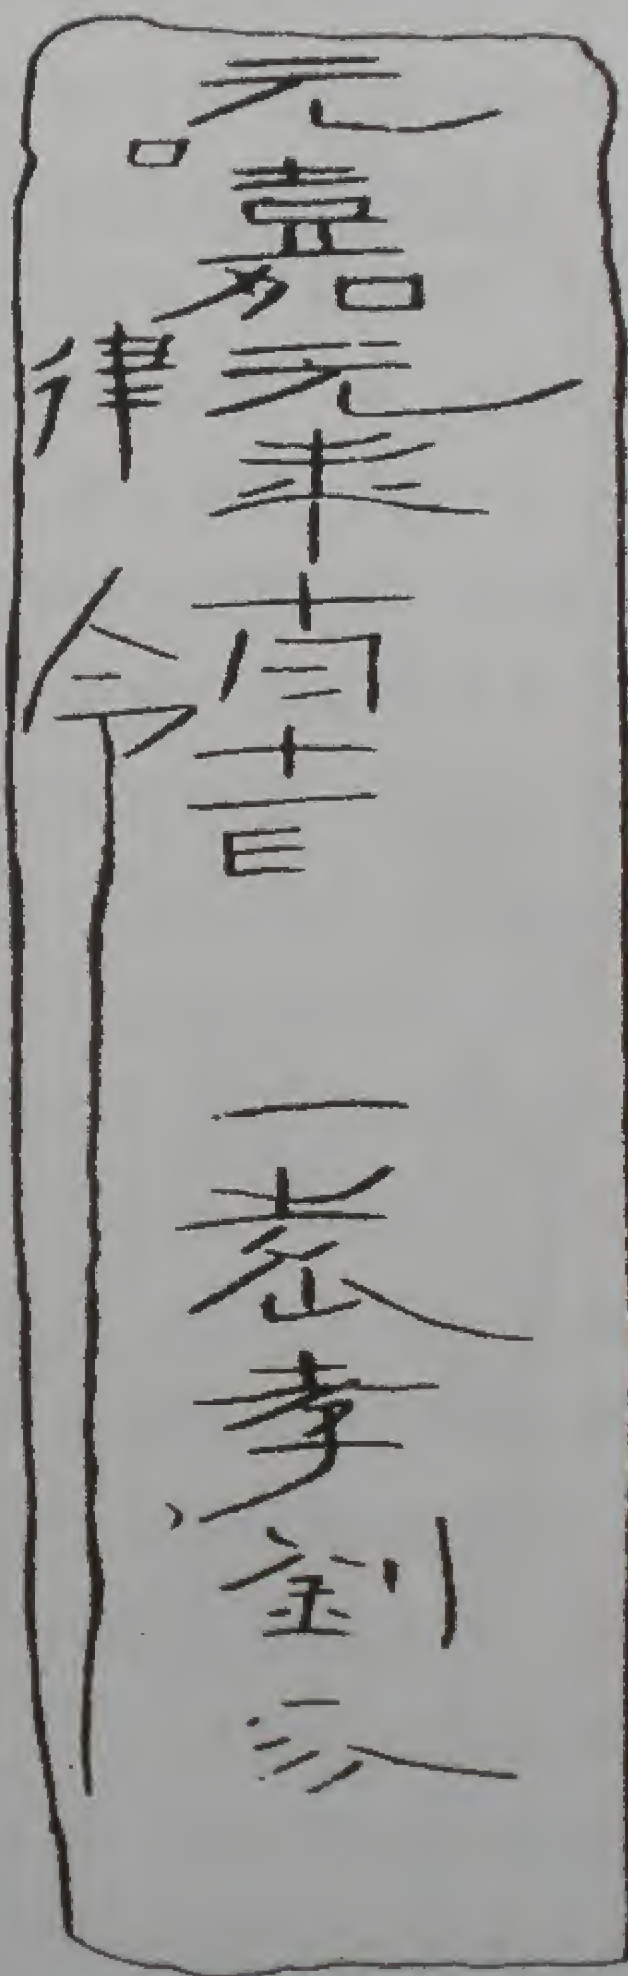 元嘉元年十月十一日
一 孝劉
律令